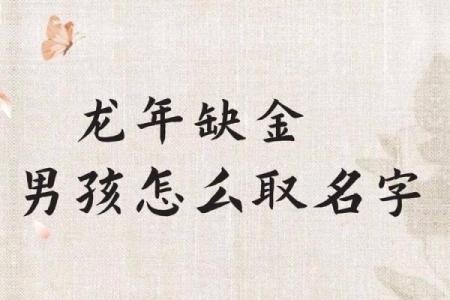 龙年缺金
男孩怎么取名字